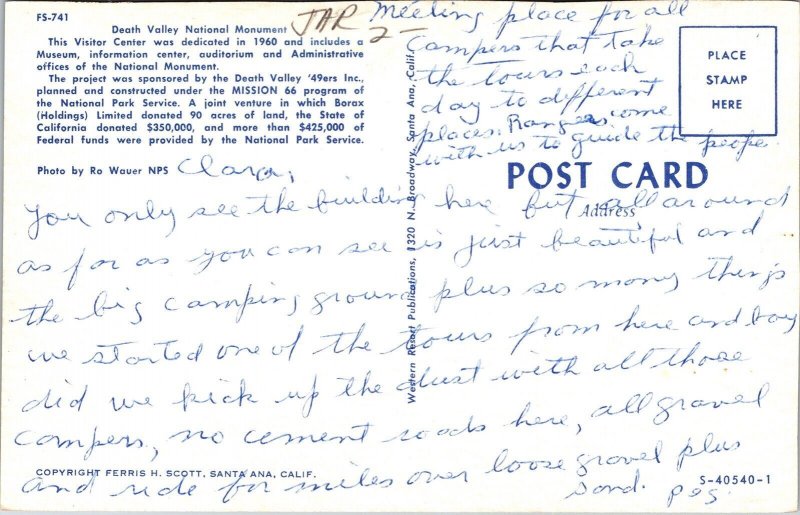 FS-741
Death Valley National Monument
This Visitor Center was dedicated in 1960 and includes a
Museum, information center, auditorium and Administrative
offices of the National Monument.
The project was sponsored by the Death Valley '49ers Inc.,
planned and constructed under the MISSION 66 program of
the National Park Service. A joint venture in which Borax
(Holdings) Limited donated 90 acres of land, the State of
California donated $350,000, and more than $425,000 of
Federal funds were provided by the National Park Service.
Photo by Ro Wauer NPS
JAR
2-
Meeting place for all
Campers that take
the tours each
day to different
places. Rangers come
with us to guide the peope.
PLACE
STAMP
HERE
POST CARD
Address
Western Resort Publications, 1320 N. Broadway, Santa Ana, Calif.
Clara,
You only see the building here but all around
as far as you can see is just beautiful and
the big camping ground plus so many things
we started one of the tours from here and boy
did we kick up the dust with all those
campers, no cement roads here, all gravel
and ride for miles over loose gravel plus
sand. pes
COPYRIGHT FERRIS H. SCOTT, SANTA ANA, CALIF.
S-40540-1